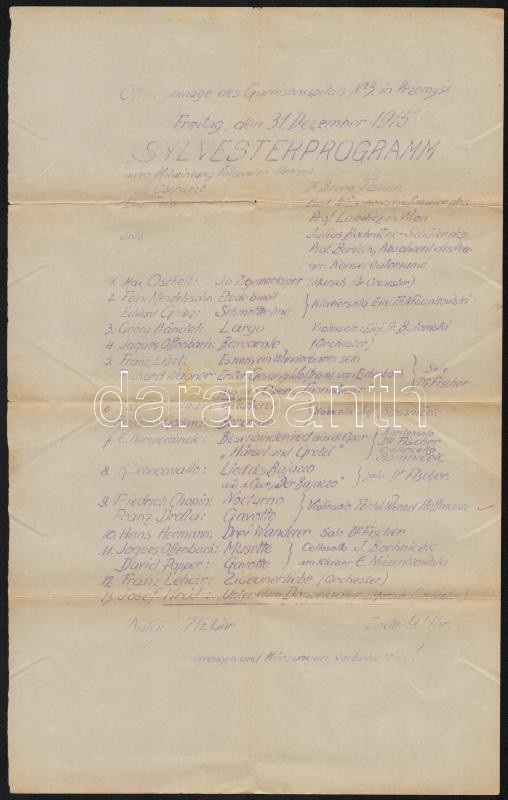 des Garnisonsspitals No 3, in Przemysl
Freitag, den 31. Dezember 1915
SYLVESTERPROGRAMM
unter Mitwirkung folgender Herren:
Oberarzt Dr Bruno Fischer
Schüler des
Prof. in Wien
und Julius Bachniček - Schüler des
Prof. Burian, Absolvent des
ger Konservatoriums
1. Max Oscheit: Im Zigeunerlager (Marsch für Orchester)
2. Felix Mendelssohn: Etude b moll
Edward Grieg: Schmetterling } Klaviersolo Einj. Fr. Nizankowski
3. Georg Händel: Largo Violinsolo: Einj. Fr. Bytomski
4. Jaques Offenbach: Barcarole (Orchester)
5. Franz Liszt: Es muss ein Wunderbares sein
Richard Wagner: Erster Gesang Wolframs von Eschenbach } Solo Dr Fischer
aus der Oper Tannhäuser
6.
7. E. Humperdinck: Besenbinderlied aus d. Oper
„Hänsel und Gretel" } Baritonsolo Dr Fischer Violoncello Bachniček
8. R. Leoncavallo: Lied des Bajazzo
aus d. Oper „Der Bajazzo" } Solo Dr Fischer
9. Friedrich Chopin: Nocturno
Franz Drdla: Gavotte } Violinsolo Wenzel Hoffmann
10. Hans Hermann: Drei Wanderer Solo Dr Fischer
11. Jaques Offenbach: Musette } Cellosolo J. Bachniček
David Popper: Gavotte } am Klavier E. Nizankowski
12. Franz Lehar: Zigeunerliebe (Orchester)
13. Josef Unter dem Doppeladler (Marsch Orchester)
Anfang 7½ Uhr Ende 9 Uhr.
und Kürzungen vorbehalten!
darabanth